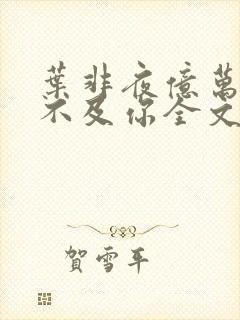 葉非夜億萬
不及你全文
賀雪平